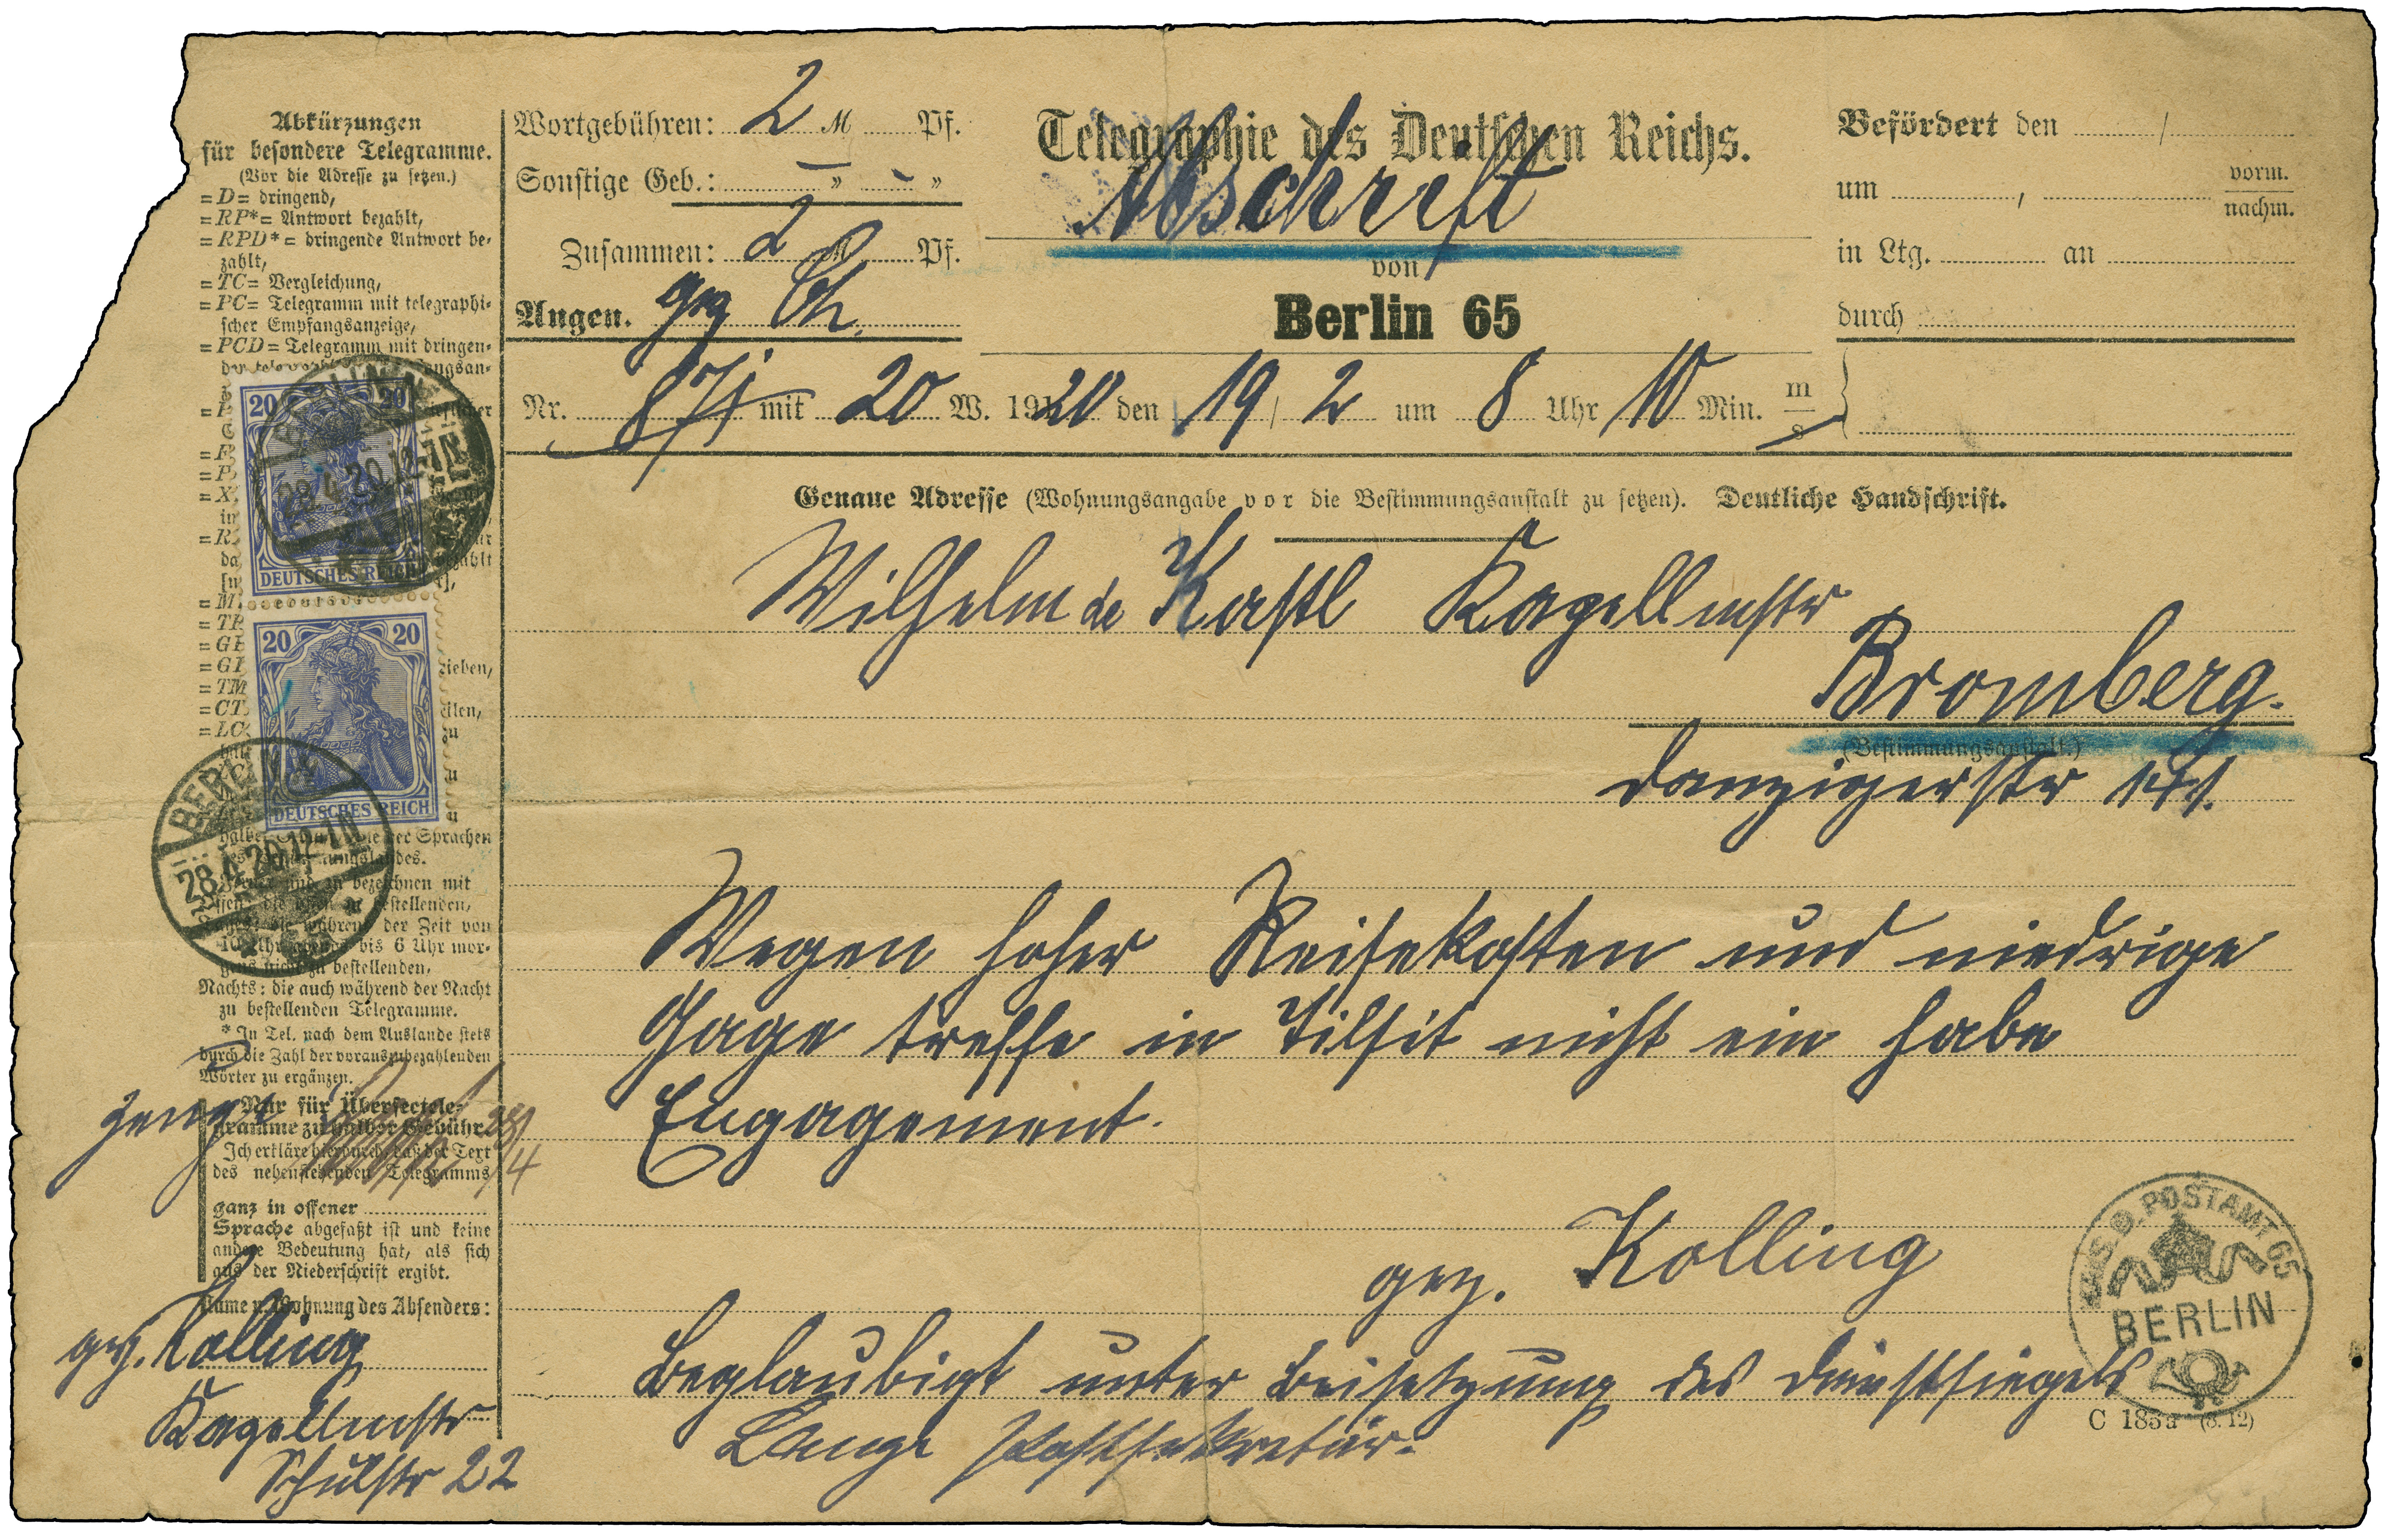 Abkürzungen
für besondere Telegramme.
(Vor die Adresse zu setzen.)
=D= dringend,
=RP*= Antwort bezahlt,
=RPD*= dringende Antwort be-
zahlt,
=TC= Vergleichung,
=PC= Telegramm mit telegraphi-
scher Empfangsanzeige,
=PCD= Telegramm mit dringen-
20 20
28.4.20.12-1N
DEUTSCHES REICH
=M
=TR
=GP
=TM
=CT
=LC
20 20
DEUTSCHES REICH
BERLIN
28.4.20.12-1N
der Sprachen
bezeichnen mit
bestellenden,
während der Zeit von
10 Uhr abends bis 6 Uhr mor-
gens nicht zu bestellenden,
Nachts: die auch während der Nacht
zu bestellenden Telegramme.
* In Tel. nach dem Auslande stets
durch die Zahl der vorauszubezahlenden
Wörter zu ergänzen.
Nur für Überseetele-
gramme zu halber Gebühr.
28/4
Ich erkläre hierdurch, daß der Text
des nebenstehenden Telegramms
ganz in offener
Sprache abgefaßt ist und keine
andere Bedeutung hat, als sich
aus der Niederschrift ergibt.
Name u. Wohnung des Absenders:
gez. Kolling
Kapellmstr
Schulstr 22
Wortgebühren: 2 M Pf.
Sonstige Geb.: — " — "
Zusammen: 2 M Pf.
Angen. gez
Telegraphie des Deutschen Reichs.
Abschrift
von
Berlin 65
Befördert den /
um , vorm.
nachm.
in Ltg. an
durch
Nr. 871 mit 20 W. 1920 den 19 / 2 um 8 Uhr 10 Min. m
s
Genaue Adresse (Wohnungsangabe vor die Bestimmungsanstalt zu setzen). Deutliche Handschrift.
Wilhelm de Kastl Kapellmstr
Bromberg.
(Bestimmungsanstalt.)
Danzigerstr
Wegen hoher Reisekosten und niedrige
Gage treffe in Tilsit nicht ein habe
Engagement.
gez. Kolling
Beglaubigt unter Beisetzung des Dienstsiegels
Lange Postsekretär.
POSTAMT 65
BERLIN
C 185a (8.12)